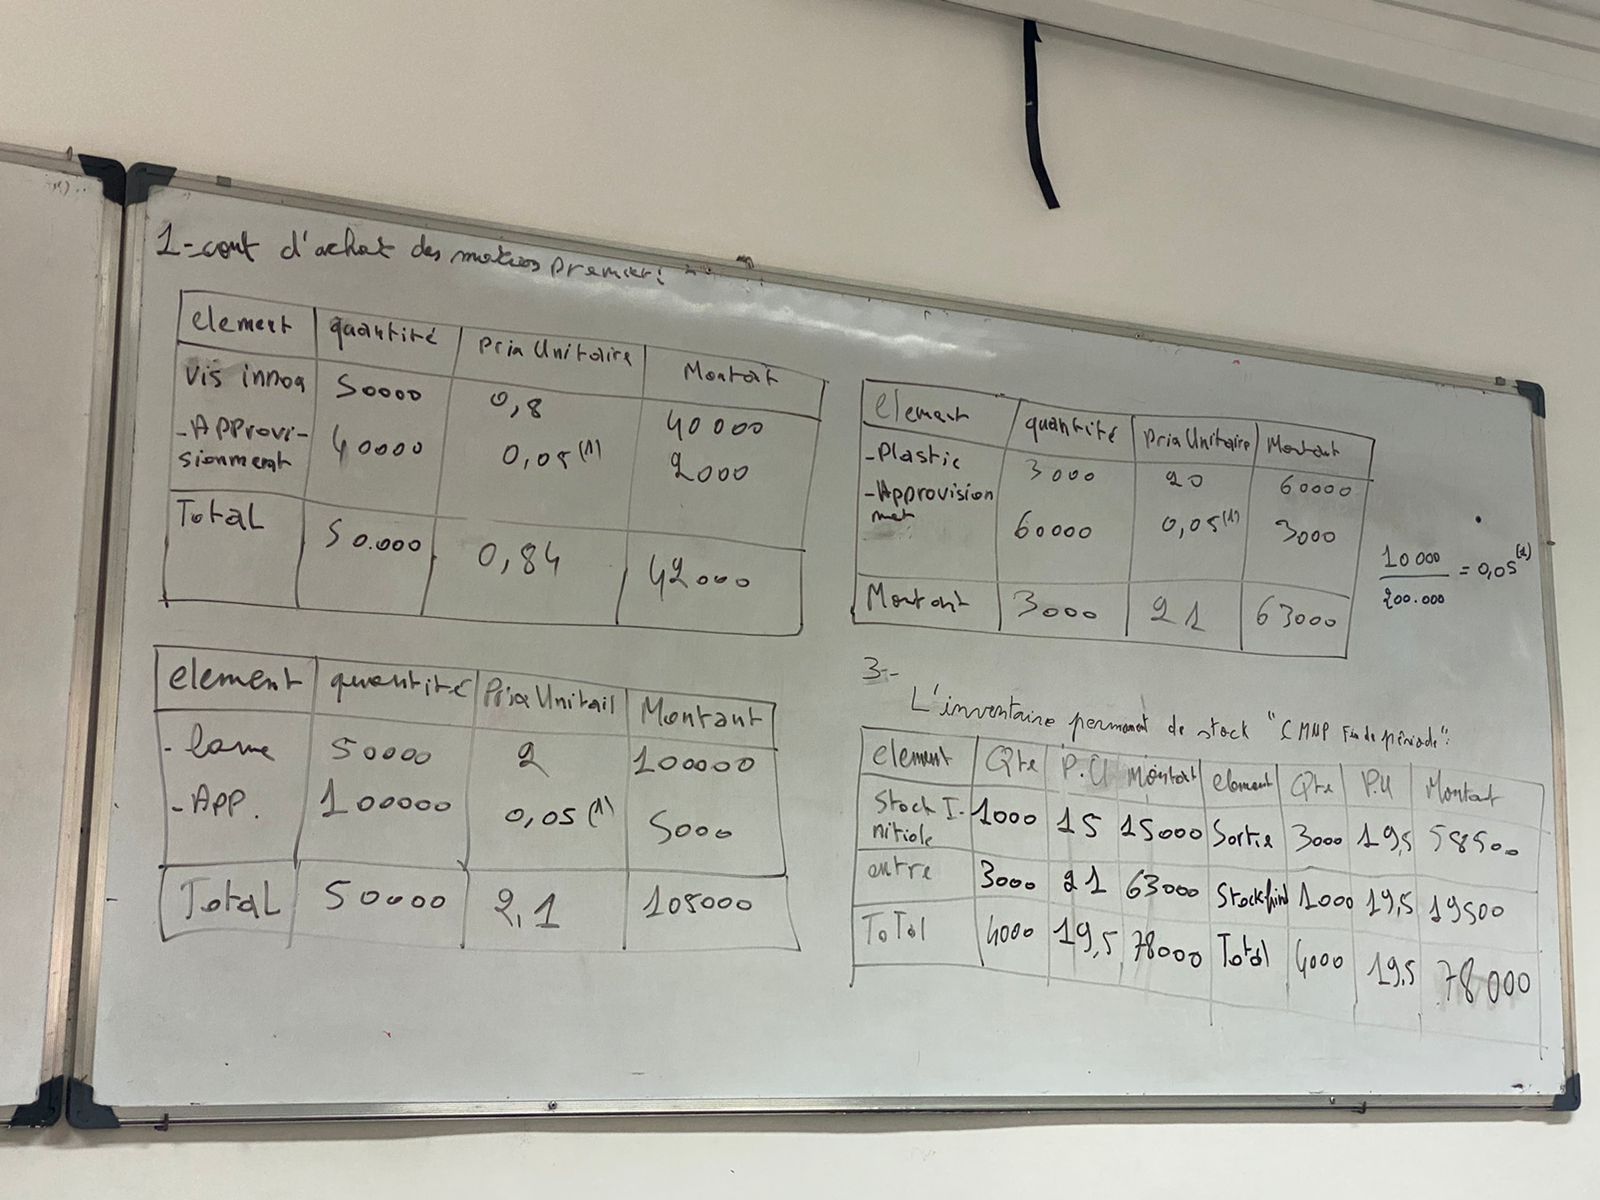 1-cout d'achat des matiers premier:
element quantité Prix Unitaire Montant
Vis innox 50000 0,8 40000
-Approvi-
sionnment 40000 0,05 (1) 2000
Total 50.000 0,84 42000
element quantité Prix Unitaire Montant
-Plastic 3000 20 60000
-Approvision
met 60000 0,05 (1) 3000
Montant 3000 21 63000
10000
200.000 = 0,05 (1)
element quantité Prix Unitail Montant
- lame 50000 2 100000
- App. 100000 0,05 (1) 5000
Total 50000 2,1 105000
3-
L'inventaire permanent de stock "CMUP Fin de période":
element Qte P.U Montant element Qte P.U Montant
Stock I-
nitiale 1000 15 15000 Sortie 3000 19,5 58500
entre 3000 21 63000 Stockfinal 1000 19,5 19500
ToTal 4000 19,5 78000 Total 4000 19,5 78000